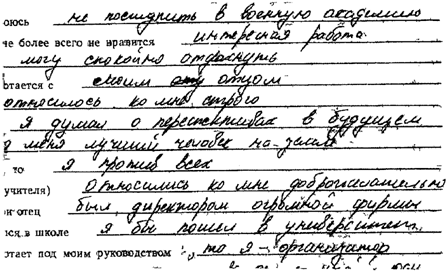 оюсь не поступить в военную академию
не более всего не нравится интересная работа
могу спокойно отдохнуть
отается с своим отцом
относилось ко мне строго
я думал о перспективах в будущем
меня лучший человек на земле
то я против всех
учителя) относились ко мне доброжелательно
отец был директором огромной фирмы
ся, в школе я бы пошел в университет
отает под моим руководством , то я – организатор